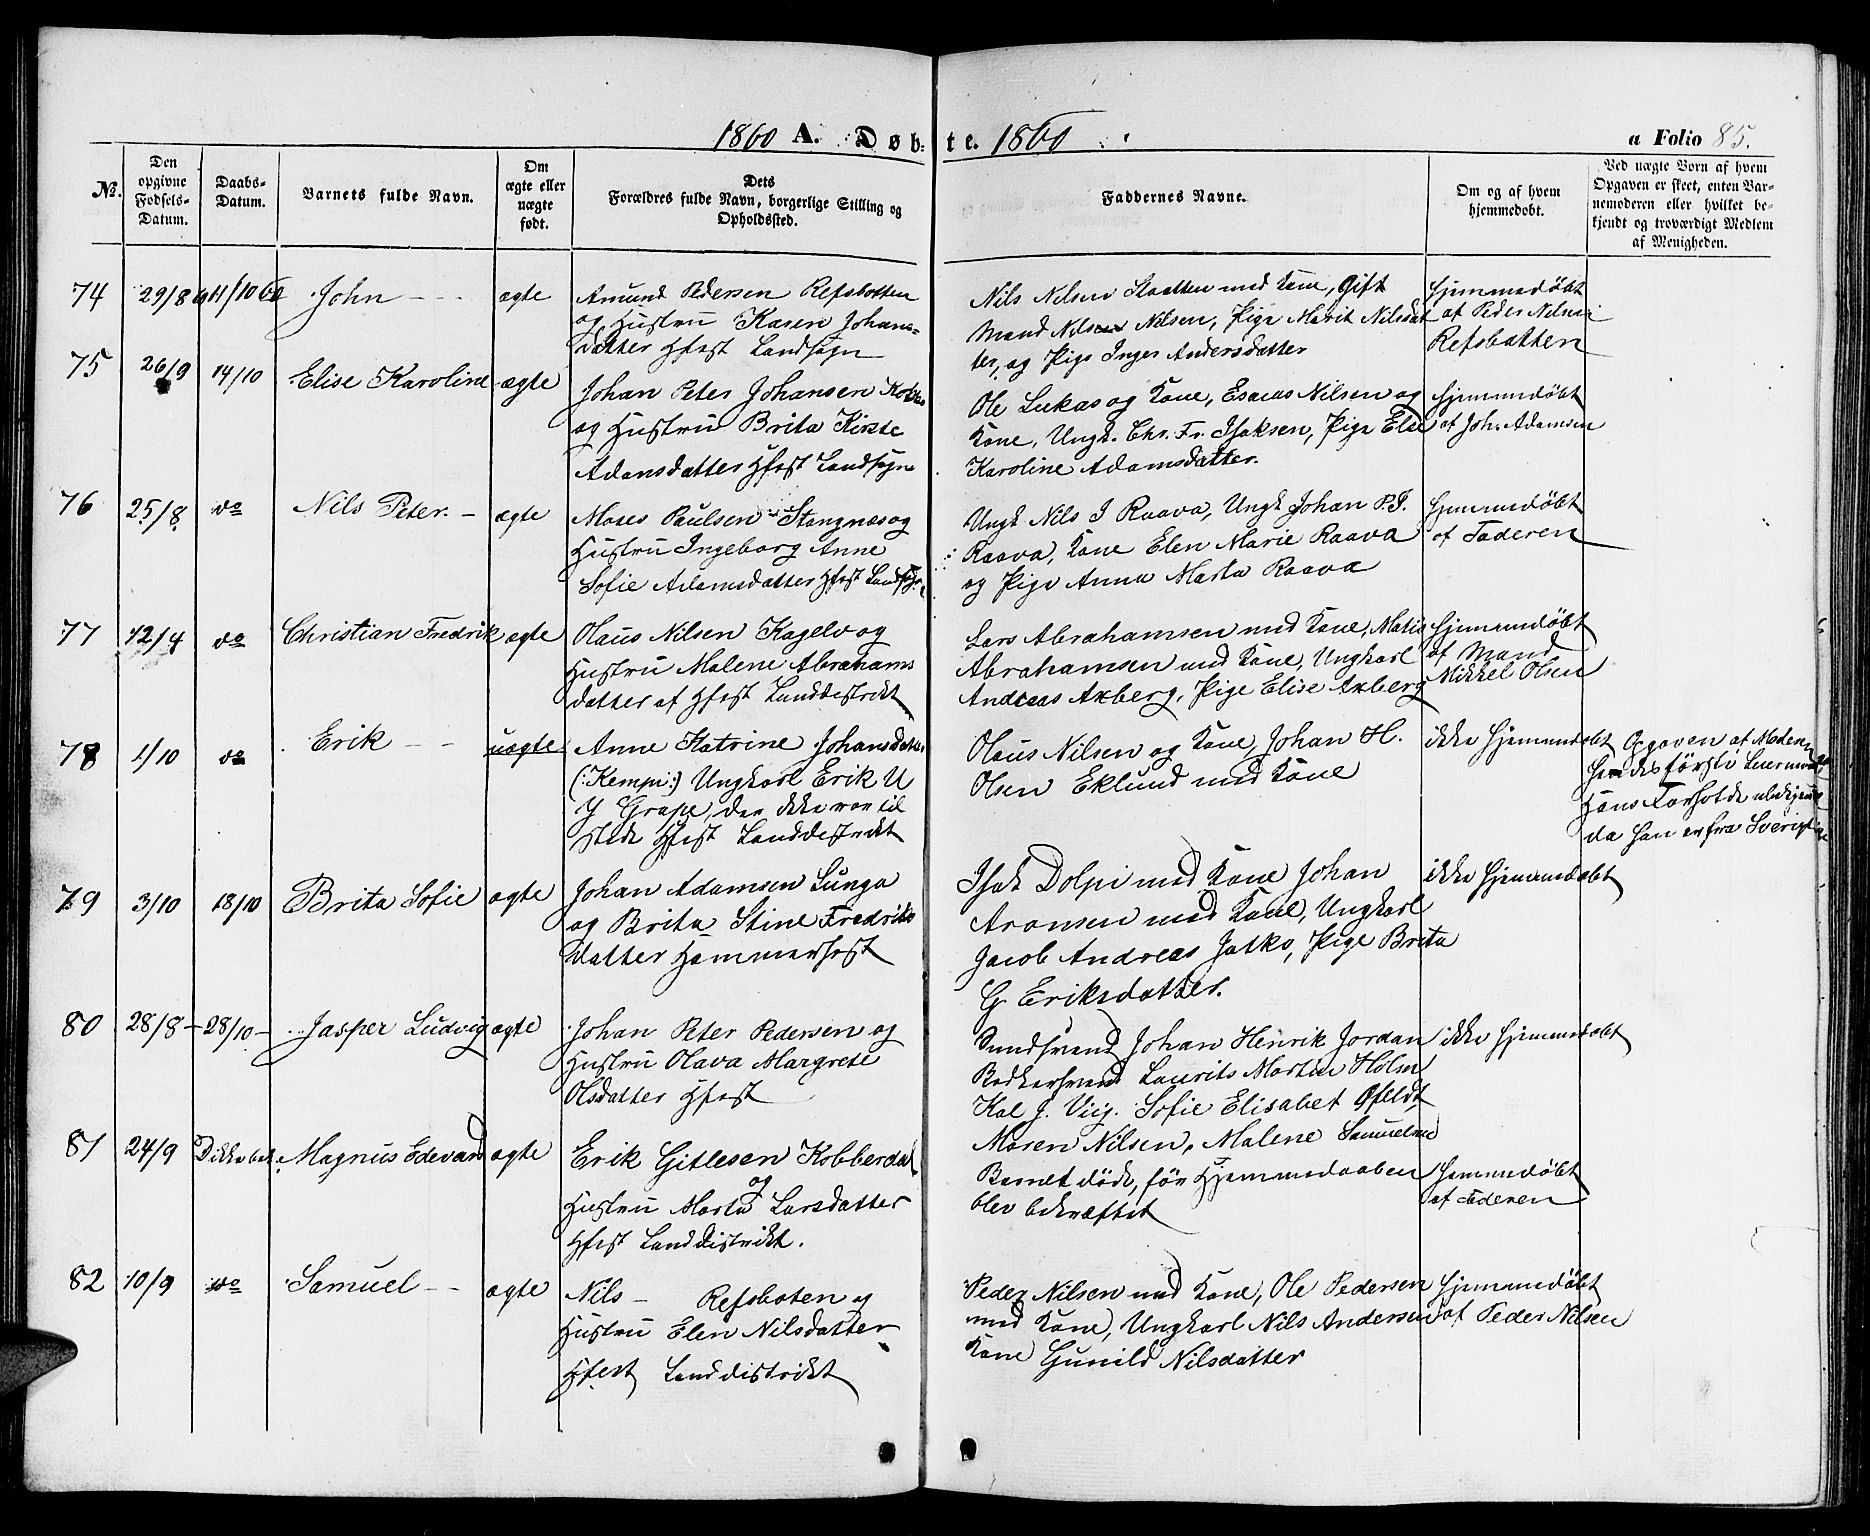 1860 A. Døb- te. 1860
a Folio 85.
No. Den opgivne Fødsels-Datum. Daabs-Datum. Barnets fulde Navn. Om ægte eller uægte født. Dets Forældres fulde Navn, borgerlige Stilling og Opholdssted. Faddernes Navne. Om og af hvem hjemmedøbt. Ved uægte Børn af hvem Opgaven er skeet, enten Barnemoderen eller hvilket bekjendt og troværdigt Medlem af Menigheden.
74 29/8 11/10 60 John - - ægte
Amund Pedersen Refsbotten
og Hustru Karen Johans-
datter Hfest Landsogn
Nils Nilsen Slaatten med Kone, Gift
Mand Nils Nilsen, Pige Marit Nilsdat
ter, og Pige Inger Andersdatter
Hjemmedøbt
af Peder Nilsen
Refsbatten
75 26/9 14/10 Elise Karoline ægte
Johan Peter Johansen
og Hustru Brita Kirste
Adamsdatter Hfest Landsogn
Ole Lukas og Kone, Esaias Nilsen og
Kone, Ungk. Chr. Fr. Isaksen, Pige Else
Karoline Adamsdatter.
Hjemmedøbt
af Joh. Adamsen
76 25/8 do Nils Peter. - ægte
Moses Paulsen Stangnæs og
Hustru Ingeborg Anne
Sofie Adamsdatter Hfest Landsogn
Ungk Nils I Raava, Ungk Johan P.J.
Raava, Kone Elen Marie Raava
og Pige Anna Marta Raava
Hjemmedøbt
af Faderen
77 12/4 do Christian Fredrik ægte
Olaus Nilsen Kagelv og
Hustru Malene Abrahams
datter af Hfest Landdistrikt
Lars Abrahamsen med Kone, Matis
Abrahamsen med Kone, Ungkarl
Andreas Axberg, Pige Elise Axberg
Hjemmedøbt
af Mand
Mikkel Olsen
78 1/10 do Erik - - uægte
Anne Katrine Johansdatter
(:Kempi:) Ungkarl Erik U
J Grape, der ikke var til
stede Hfest Landdistrikt
Olaus Nilsen og Kone, Johan H.
Olsen Eklund med Kone
ikke hjemmedøbt
Opgaven af Moderen
hendes første Leiermaal,
Hans Forhold ubekjendt
da han er fra Sverige
79 3/10 18/10 Brita Sofie ægte
Johan Adamsen Lunga
og Brita Stine Fredriks
datter Hammerfest
Isak Dolpi med Kone Johan
Aronsen med Kone, Ungkarl
Jacob Andreas Jatko, Pige Brita
G. Eriksdatter.
ikke hjemmedøbt
80 28/8 - 28/10 - Jasper Ludvig ægte
Johan Peter Pedersen og
Hustru Olava Margrete
Olsdatter Hfest
Johan Henrik Jordan
Laurits Martin Holm
Kal J. Viig. Sofie Elisabet Ofeldt,
Maren Nilsen, Malene Samuelsen
ikke hjemmedøbt
81 24/9 Magnus Edevard ægte
Erik Gitlesen Kobberdal
og
Hustru Marta Larsdatter
Hfest Landdistrikt.
Barnet døde, før Hjemmedaaben
blev bekræftet
Hjemmedøbt
af Faderen
82 10/9 do Samuel - - ægte
Nils - Refsboten og
Hustru Elen Nilsdatter
Hfest Landdistrikt
Peder Nilsen med Kone, Ole Pedersen
med Kone, Ungkarl Nils Andersen
Kone Gunild Nilsdatter
Hjemmedøbt
af Peder Nilsen